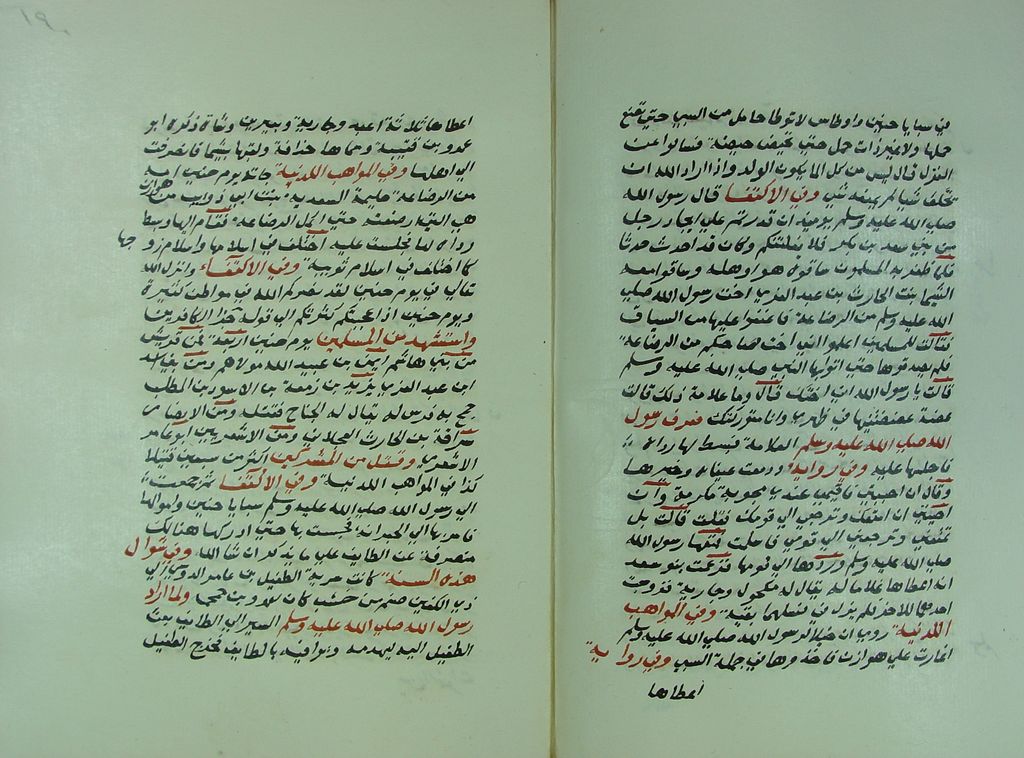 في سبايا حنين واوطاس لا توطا حامل من السبي حتي تضع
حملها ولا غير ذات حمل حتي تحيض حيضة فسالوا عن
العزل قال ليس من كل الما يكون الولد واذا اراد الله ان
يخلق شيا لم يمنعه شي وفي الاكتفا قال رسول الله
صلي الله عليه وسلم يوميذ ان قدرتم علي بجاد رجل
من بني سعد بن بكر فلا يفلتنكم وكان قد احدث حدثا
فلما ظفر به المسلمون ساقوه هو واهله وساقوا معه
الشيما بنت الحارث بن عبد العزي اخت رسول الله صلي
الله عليه وسلم من الرضاعة فاعنفوا عليها من السياق
فقالت للمسلمين اعلموا اني اخت صاحبكم من الرضاعة
فلم يصدقوها حتي اتوا بها النبي صلي الله عليه وسلم
قالت يا رسول الله اني اختك قال وما علامة ذلك قالت
عضة عضضتنيها في ظهري وانا متوركتك فعرف رسول
الله صلي الله عليه وسلم العلامة فبسط لها رداه
فاجلسها عليه وفي رواية ودمعت عيناه وخيرها
وقال ان احببت فاقيمي عندي محببة مكرمة وان
احببت ان امتعك وترجعي الي قومك فعلت قالت بل
تمتعني وترجعني الي قومي فاسلمت فمتعها رسول الله
صلي الله عليه وسلم وردها الي قومها فزعمت بنو سعد
انه اعطاها غلاما له يقال له مكحول وجارية فزوجت
احدهما للاخر فلم يزل في نسلهما بقية وفي المواهب
اللدنية روي ان خيلا لرسول الله صلي الله عليه وسلم
اغارت علي هوازن فاخذوها في جملة السبي وفي رواية
اعطاها
اعطاها ثلاثة اعبد وجارية وبعيرين وشاة ذكره ابو
عمرو بن قتيبة وسماها حذافة ولقبها شيما فانصرفت
الي اهلها وفي المواهب اللدنية جاته يوم حنين امه
من الرضاعة حليمة السعدية بنت ابي ذويب من هوازن
هي التي ارضعته حتي اكمل الرضاعة فقام اليها وبسط
رداه لها فجلست عليه اختلف في اسلامها واسلام زوجها
كما اختلف في اسلام ثويبة وفي الاكتفاء وانزل الله
تعالي في يوم حنين لقد نصركم الله في مواطن كثيرة
ويوم حنين اذ اعجبتكم كثرتكم الي قوله جزا الكافرين
واستشهد من المسلمين يوم حنين اربعة من قريش
من بني هاشم ايمن بن عبيد الله مولاهم ومن بني اسد
ابن عبد العزي يزيد بن زمعة بن الاسود بن المطلب
جمح به فرس له يقال له الجناح فقتله ومن الانصار
سراقة بن الحارث العجلاني ومن الاشعريين ابو عامر
الاشعري وقتل من المشركين اكثر من سبعين قتيلا
كذا في المواهب اللدنية وفي الاكتفا ثم جمعت
الي رسول الله صلي الله عليه وسلم سبايا حنين واموالها
فامر بها الي الجعرانة فحبست بها حتي ادركها هنالك
منصرفه عن الطايف علي ما يذكر ان شا الله وفي شوال
هذه السنة كانت سرية الطفيل بن عامر الدوسي الي
ذي الكفين صنم من خشب كان لعمرو بن حممة ولما اراد
رسول الله صلي الله عليه وسلم السير الي الطايف بعث
الطفيل اليه ليهدمه ويوافيه بالطايف فخرج الطفيل